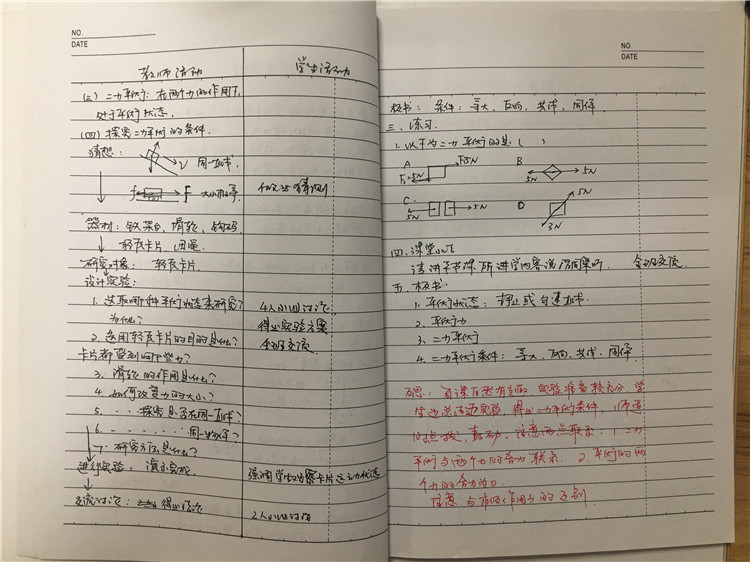 NO.
DATE
教师活动 学生活动
(三)二力平衡:在两个力的作用下,
处于平衡状态.
(四)探究二力平衡的条件.
猜想: 同一直线.
f F 大小相等 做出猜测
器材:铁架台,滑轮,钩码
轻质卡片 细绳
研究对象:轻质卡片.
设计实验:
1. 选取哪种平衡状态来研究? 4人小组讨论
为什么? 得出实验方案
2. 选用轻质卡片的目的是什么? 全班交流
卡片都受到哪些力?
3. 滑轮的作用是什么?
4. 如何改变力的大小?
5. ······探究是否在同一直线?
6. ······同一物体?
7. 研究方法是什么?
进行实验: 演示完成 强调学生观察卡片运动状态
交流讨论: 得出结论 2人小组讨论
NO.
DATE
板书: 条件: 等大,反向,共线,同体
三. 练习.
1. 以下为二力平衡的是( )
A F=5N B
F=5N 5N 5N
C. D 5N
5N 5N 3N
四. 课堂小结
请讲本节课所讲学内容说给同桌听. 全班交流.
五. 板书.
1. 平衡状态: 静止或匀速直线.
2. 平衡力
3. 二力平衡
4. 二力平衡条件: 等大,反向,共线,同体.
反思: 实验准备较充分,学
生也 实验,得出二力平衡条件.
点拨, 注意两点联系: 1. 二力
平衡与两个力的合力联系. 2. 平衡的两
个力的合力为0
注意与 作用力的区别.